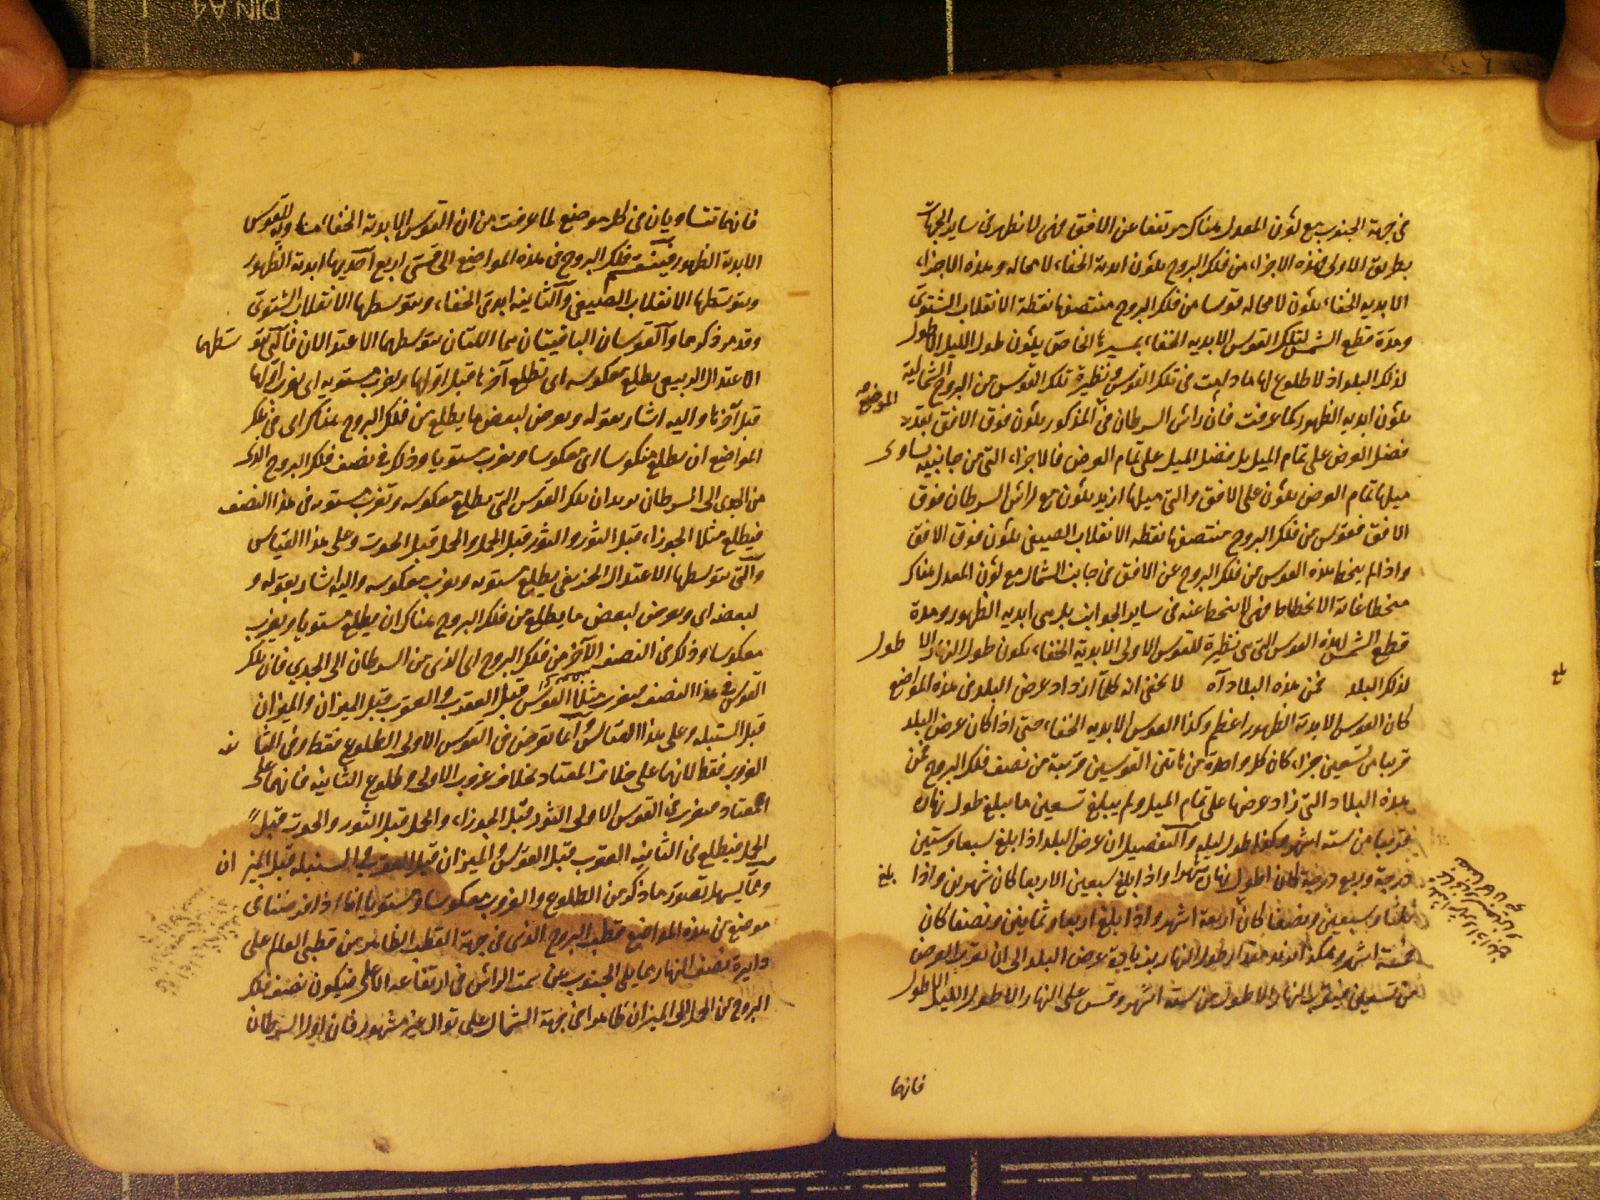 في جهة الجنوب مع كون المعدل هناك مرتفعا عن الافق فهي لا تظهر في ساير الجهات
بطريق الاولى فهذه الاجزاء من فلك البروج يكون ابدية الخفاء لا محاله وهذه الاجزاء
الابديه الخفاء يكون لا محاله قوسا من فلك البروج منتصفها نقطة الانقلاب الشتوي
ومدة قطع الشمس لتلك القوس الابديه الخفاء بمسيرها الخاص يكون طول الليل الاطول
لذلك البلد اذ لا طلوع لها ما دامت في تلك القوس ونظيرة تلك القوس من البروج الشمالية
يكون ابديه الظهور كما عرفت فان راس السرطان في المذكور يكون فوق الافق بقدر
الموضع
فضل العرض على تمام الميل بل فضل الميل على تمام العرض فالاجزاء التي من جانبيه يساوى
ميلها تمام العرض يكون على الافق والتي ميلها ازيد يكون مع راس السرطان فوق
الافق فقوس من فلك البروج منتصفها نقطه الانقلاب الصيفي يكون فوق الافق
واذا لم ينحط هذه القوس من فلك البروج عن الافق في جانب الشمال مع كون المعدل هناك
منحطا غاية الانحطاط فهي لا ينحط عنه في ساير الجوانب بل هي ابديه الظهور ومدة
قطع الشمس لهذه القوس التي هي نظيرة للقوس الاولى الابدية الخفاء يكون طول النهار الاطول
لذلك البلد نحن هذه البلاد آه لا يخفى انه كلما ازداد عرض البلد في هذه المواضع
كان القوس الابدية الظهور اعظم وكذا القوس الابديه الخفاء حتى اذا كان عرض البلد
قريبا من تسعين جزءا كان كل واحدة من هاتين القوسين قريبة من نصف فلك البروج فمن
هذه البلاد التي زاد عرضها على تمام الميل ولم يبلغ تسعين ما يبلغ طول نهاره
قريبا من سته اشهر وكذا طول ليله والتفصيل ان عرض البلد اذا بلغ سبعا وستين
درجة وربع درجة كان اطول نهاره شهرا واذا بلغ سبعين الا ربعا كان شهرين واذا بلغ
ثلثا وسبعين ونصفا كان اربعة اشهر واذا بلغ اربعا وثمانين ونصفا كان
خمسة اشهر وهكذا ازيد مقدار طول النهار بزيادة عرض البلد الى ان يقرب العرض
من تسعين فيقرب النهار الاطول من ستة اشهر وقس على النهار الاطول الليل الاطول
فانهما
فانهما تتساويان في كل موضع لما عرفت من ان القوس الابدية الخفاء مساوية للقوس
الابدية الظهور فينقسم فلك البروج في هذه المواضع الى قسي اربع احديها ابدية الظهور
ويتوسطها الانقلاب الصيفي والثانيه ابدية الخفاء ويتوسطها الانقلاب الشتوي
وقد مر ذكرهما والقوسان الباقيتان هما اللتان يتوسطهما الاعتدالان فالتي يتوسطها
الاعتدال الربيعي يطلع معكوسه اى تطلع آخرها قبل اولها ويغرب مستويه اى يغرب اولها
قبل آخرها واليه اشار بقوله ويعرض لبعض ما يطلع من فلك البروج هناك اى في تلك
المواضع ان يطلع منكوسا اى معكوسا ويغرب مستويا وذلك في نصف فلك البروج الذى
من الجدى الى السرطان يريد ان تلك القوس التي يطلع معكوسه وتغرب مستويه في هذا النصف
فيطلع مثلا الجوزاء قبل الثور والثور قبل الحمل والحمل قبل الحوت وعلى هذا القياس
والتي يتوسطها الاعتدال الخريفي يطلع مستويه ويغرب معكوسه واليه اشار بقوله و
لبعضه اى ويعرض لبعض ما يطلع من فلك البروج هناك ان يطلع مستويا ويغرب
معكوسا وذلك في النصف الآخر من فلك البروج اى الذى من السرطان الى الجدى فان تلك
القوس في هذا النصف فيغرب مثلا القوس قبل العقرب والعقرب قبل الميزان والميزان
قبل السنبله وعلى هذا القياس وانما تعرض في القوس الاولى الطلوع فقط وفي الثانيه
الغروب فقط لانهما على خلاف المعتاد بخلاف غروب الاولى وطلوع الثانيه فانهما على
المعتاد فيغرب في القوس الاولى الثور قبل الجوزاء والحمل قبل الثور والحوت قبل
الحمل فيطلع في الثانيه العقرب قبل القوس والميزان قبل العقرب والسنبله قبل الميزان
ومما يسهل تصور ما ذكر من الطلوع والغروب معكوسا ومستويا انا اذا فرضنا في
موضع من هذه المواضع قطب البروج الذى في جهة القطب الظاهر من قطبى العالم على
دايرة نصف النهار مما يلى الجنوب عن سمت الراس في ارتفاعه الاعلى فيكون نصف فلك
البروج من الحمل الى الميزان ظاهرا في جهة الشمال على توال غير مشهور فان اول السرطان